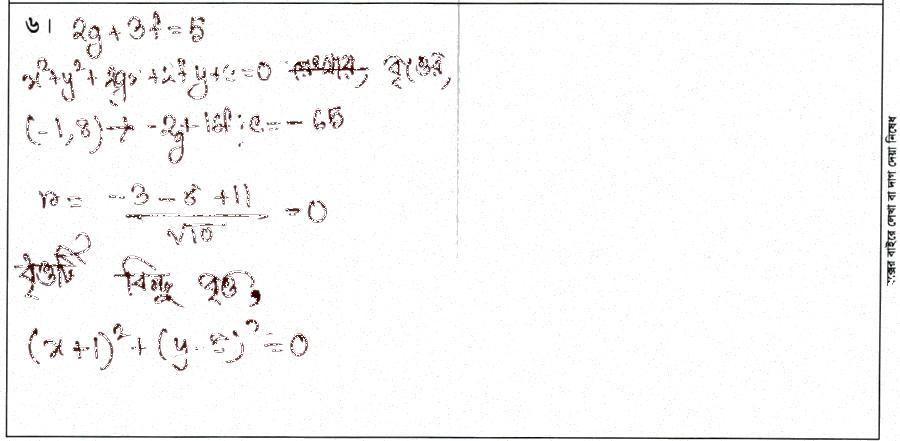 ৬। 2g + 3f = 5
x²+y²+2gx+2fy+c=0 বৃত্তের,
(-1,8) → -2g+16f+c=-65
r = (-3-8+11)/√10 = 0
বৃত্তটি বিন্দু বৃত্ত,
(x+1)²+(y-8)²=0
বক্সের বাইরে লেখা বা দাগ দেয়া নিষেধ